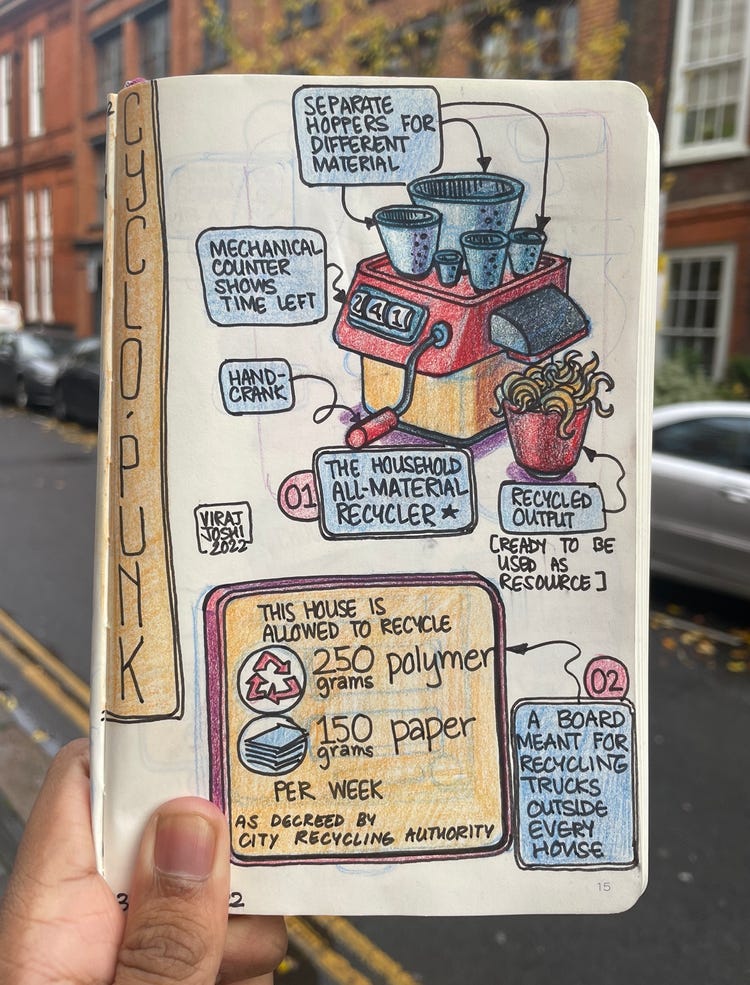 CYCLO.PUNK
SEPARATE
HOPPERS FOR
DIFFERENT
MATERIAL
MECHANICAL
COUNTER
SHOWS
TIME LEFT
241
HAND-
CRANK
01
THE HOUSEHOLD
ALL-MATERIAL
RECYCLER ★
RECYCLED
OUTPUT
[READY TO BE
USED AS
RESOURCE]
VIRAJ
JOSHI
2022
THIS HOUSE IS
ALLOWED TO RECYCLE
250 polymer
grams
150 paper
grams
PER WEEK
AS DECREED BY
CITY RECYCLING AUTHORITY
02
A BOARD
MEANT FOR
RECYCLING
TRUCKS
OUTSIDE
EVERY
HOUSE
15